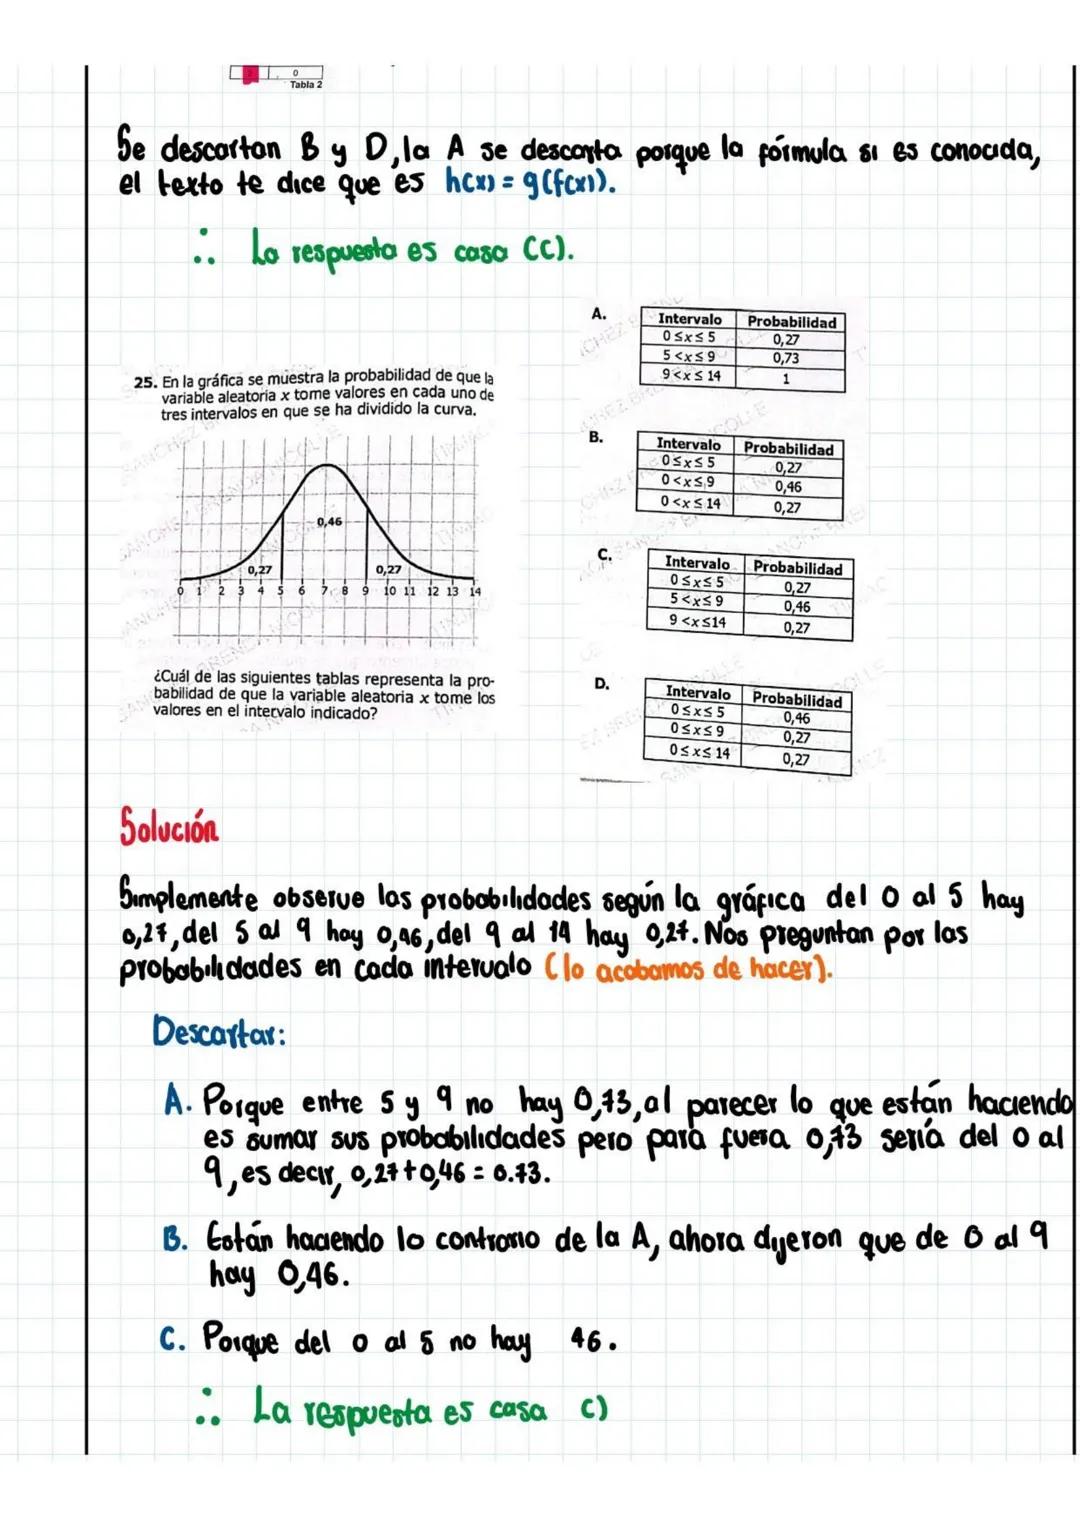 0
Tabla 2
Se descartan B y D, la A se descarta porque la fórmula si es conocida,
el texto te dice que es h(x) = g(f(x)).
∴ La respuesta es casa (C).
25. En la gráfica se muestra la probabilidad de que la
variable aleatoria x tome valores en cada uno de
tres intervalos en que se ha dividido la curva.
0,46
0,27 0,27
0 1 2 3 4 5 6 7 8 9 10 11 12 13 14
¿Cuál de las siguientes tablas representa la pro-
babilidad de que la variable aleatoria x tome los
valores en el intervalo indicado?
A.
Intervalo Probabilidad
0≤x≤5 0,27
5<x≤9 0,73
9<x≤14 1
B.
Intervalo Probabilidad
0≤x≤5 0,27
0<x≤9 0,46
0<x≤14 0,27
C.
Intervalo Probabilidad
0≤x≤5 0,27
5<x≤9 0,46
9<x≤14 0,27
D.
Intervalo Probabilidad
0≤x≤5 0,46
0≤x≤9 0,27
0≤x≤14 0,27
Solución
Simplemente observe las probabilidades según la gráfica del 0 al 5 hay
0,27, del 5 al 9 hay 0,46, del 9 al 14 hay 0,27. Nos preguntan por las
probabilidades en cada intervalo (lo acabamos de hacer).
Descartar:
A. Porque entre 5 y 9 no hay 0,73, al parecer lo que están haciendo
es sumar sus probabilidades pero para fuera 0,73 sería del 0 al
9, es decir, 0,27+0,46 = 0.73.
B. Están haciendo lo contrario de la A, ahora dijeron que de 0 al 9
hay 0,46.
C. Porque del 0 al 5 no hay 46.
∴ La respuesta es casa C)